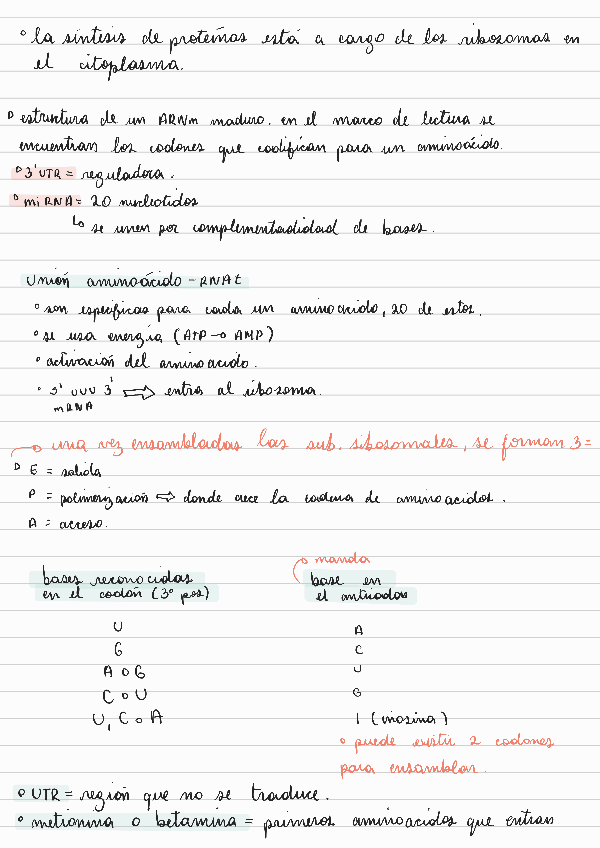 ° la síntesis de proteínas está a cargo de los ribosomas en
el citoplasma.
° estructura de un ARNm maduro. en el marco de lectura se
encuentran los codones que codifican para un aminoácido.
° 3' UTR = reguladora.
° mi RNA = 20 nucleotidos
↳ se unen por complementaridad de bases.
Unión aminoácido - RNAt
° son específicas para cada un aminoacido, 20 de estos.
° se usa energía (ATP → AMP)
° activación del aminoacido.
° 5' UUU 3' ⇒ entra al ribosoma.
mRNA
→ una vez ensambladas las sub. ribosomales, se forman 3 =
° E = salida
P = polimerización ⇒ donde crece la cadena de aminoacidos.
A = acceso.
→ manda
bases reconocidas base en
en el codón (3° pos) el anticodon
U A
G C
A o G U
C o U G
U, C o A I (inosina)
° puede existir 2 codones
para ensamblar.
° UTR = región que no se traduce.
° metionina o betamina = primeros aminoacidos que entran